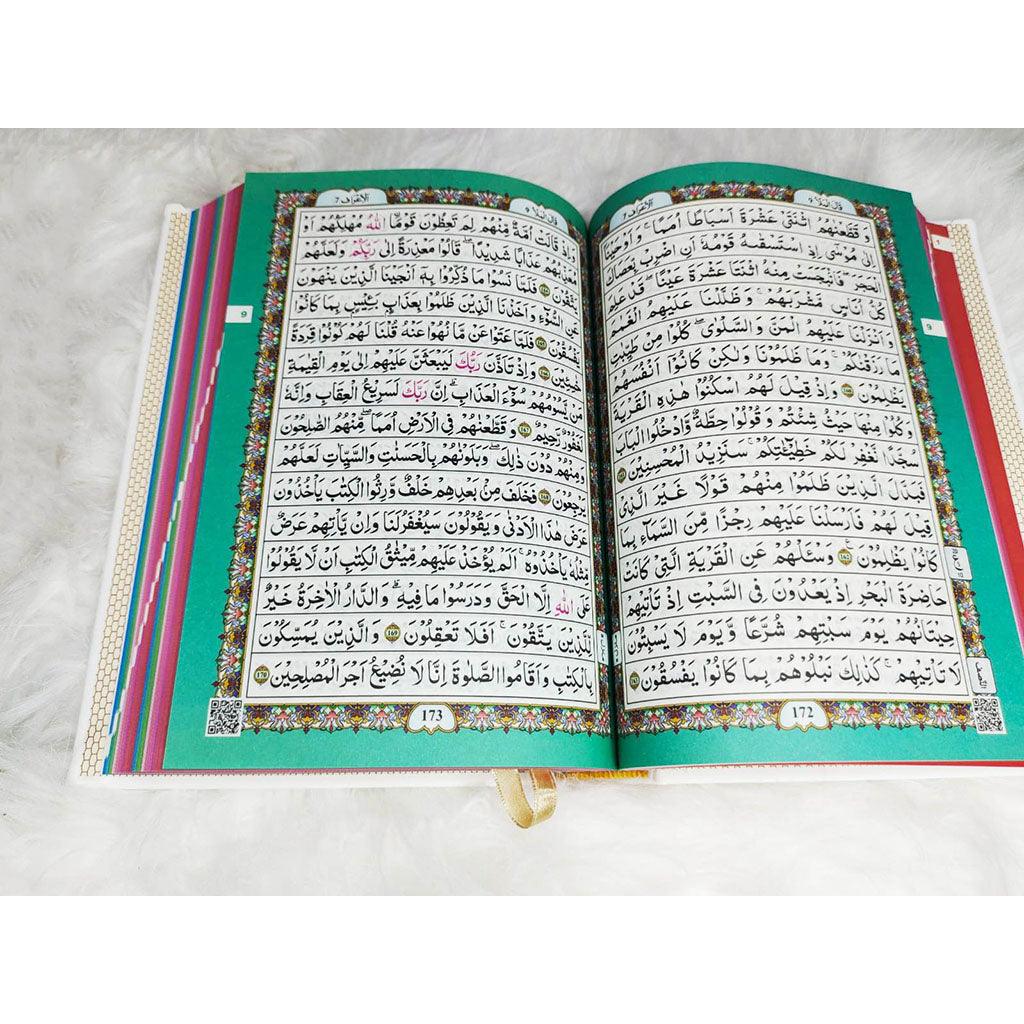 قَالَ الْمَلَاُ ٩
اَلْاَعْرَاف ٧
وَقَطَّعْنٰهُمُ اثْنَتَيْ عَشْرَةَ اَسْبَاطًا اُمَمًا ۗ وَاَوْحَيْنَآ
اِلٰى مُوْسٰٓى اِذِ اسْتَسْقٰىهُ قَوْمُهٗٓ اَنِ اضْرِبْ بِّعَصَاكَ
الْحَجَرَ ۚ فَانْۢبَجَسَتْ مِنْهُ اثْنَتَا عَشْرَةَ عَيْنًا ۗ قَدْ عَلِمَ
كُلُّ اُنَاسٍ مَّشْرَبَهُمْ ۗ وَظَلَّلْنَا عَلَيْهِمُ الْغَمَامَ
وَاَنْزَلْنَا عَلَيْهِمُ الْمَنَّ وَالسَّلْوٰى ۗ كُلُوْا مِنْ طَيِّبٰتِ
مَا رَزَقْنٰكُمْ ۗ وَمَا ظَلَمُوْنَا وَلٰكِنْ كَانُوْٓا اَنْفُسَهُمْ
يَظْلِمُوْنَ 160 وَاِذْ قِيْلَ لَهُمُ اسْكُنُوْا هٰذِهِ الْقَرْيَةَ
وَكُلُوْا مِنْهَا حَيْثُ شِئْتُمْ وَقُوْلُوْا حِطَّةٌ وَّادْخُلُوا الْبَابَ
سُجَّدًا نَّغْفِرْ لَكُمْ خَطِيْۤـٰٔتِكُمْ ۗ سَنَزِيْدُ الْمُحْسِنِيْنَ 161
فَبَدَّلَ الَّذِيْنَ ظَلَمُوْا مِنْهُمْ قَوْلًا غَيْرَ الَّذِيْ
قِيْلَ لَهُمْ فَاَرْسَلْنَا عَلَيْهِمْ رِجْزًا مِّنَ السَّمَاۤءِ بِمَا
كَانُوْا يَظْلِمُوْنَ 162 وَسْـَٔلْهُمْ عَنِ الْقَرْيَةِ الَّتِيْ كَانَتْ
حَاضِرَةَ الْبَحْرِ ۘ اِذْ يَعْدُوْنَ فِى السَّبْتِ اِذْ تَأْتِيْهِمْ
حِيْتَانُهُمْ يَوْمَ سَبْتِهِمْ شُرَّعًا وَّيَوْمَ لَا يَسْبِتُوْنَ
لَا تَأْتِيْهِمْ ۛ كَذٰلِكَ نَبْلُوْهُمْ بِمَا كَانُوْا يَفْسُقُوْنَ 163
172
1
9
قَالَ الْمَلَاُ ٩
اَلْاَعْرَاف ٧
وَاِذْ قَالَتْ اُمَّةٌ مِّنْهُمْ لِمَ تَعِظُوْنَ قَوْمًا ۙ اللّٰهُ مُهْلِكُهُمْ اَوْ
مُعَذِّبُهُمْ عَذَابًا شَدِيْدًا ۗ قَالُوْا مَعْذِرَةً اِلٰى رَبِّكُمْ وَلَعَلَّهُمْ
يَتَّقُوْنَ 164 فَلَمَّا نَسُوْا مَا ذُكِّرُوْا بِهٖٓ اَنْجَيْنَا الَّذِيْنَ يَنْهَوْنَ
عَنِ السُّوْۤءِ وَاَخَذْنَا الَّذِيْنَ ظَلَمُوْا بِعَذَابٍۢ بَـِٔيْسٍۢ بِمَا كَانُوْا
يَفْسُقُوْنَ 165 فَلَمَّا عَتَوْا عَنْ مَّا نُهُوْا عَنْهُ قُلْنَا لَهُمْ كُوْنُوْا قِرَدَةً
خٰسِـِٕيْنَ 166 وَاِذْ تَاَذَّنَ رَبُّكَ لَيَبْعَثَنَّ عَلَيْهِمْ اِلٰى يَوْمِ الْقِيٰمَةِ
مَنْ يَّسُوْمُهُمْ سُوْۤءَ الْعَذَابِ ۗ اِنَّ رَبَّكَ لَسَرِيْعُ الْعِقَابِ ۖ وَاِنَّهٗ
لَغَفُوْرٌ رَّحِيْمٌ 167 وَقَطَّعْنٰهُمْ فِى الْاَرْضِ اُمَمًا ۚ مِنْهُمُ الصّٰلِحُوْنَ
وَمِنْهُمْ دُوْنَ ذٰلِكَ ۖ وَبَلَوْنٰهُمْ بِالْحَسَنٰتِ وَالسَّيِّاٰتِ لَعَلَّهُمْ
يَرْجِعُوْنَ 168 فَخَلَفَ مِنْۢ بَعْدِهِمْ خَلْفٌ وَّرِثُوا الْكِتٰبَ يَأْخُذُوْنَ
عَرَضَ هٰذَا الْاَدْنٰى وَيَقُوْلُوْنَ سَيُغْفَرُ لَنَا ۚ وَاِنْ يَّأْتِهِمْ عَرَضٌ
مِّثْلُهٗ يَأْخُذُوْهُ ۗ اَلَمْ يُؤْخَذْ عَلَيْهِمْ مِّيْثَاقُ الْكِتٰبِ اَنْ لَّا يَقُوْلُوْا
عَلَى اللّٰهِ اِلَّا الْحَقَّ وَدَرَسُوْا مَا فِيْهِ ۗ وَالدَّارُ الْاٰخِرَةُ خَيْرٌ
لِّلَّذِيْنَ يَتَّقُوْنَ ۗ اَفَلَا تَعْقِلُوْنَ 169 وَالَّذِيْنَ يُمَسِّكُوْنَ
بِالْكِتٰبِ وَاَقَامُوا الصَّلٰوةَ ۗ اِنَّا لَا نُضِيْعُ اَجْرَ الْمُصْلِحِيْنَ 170
173
9